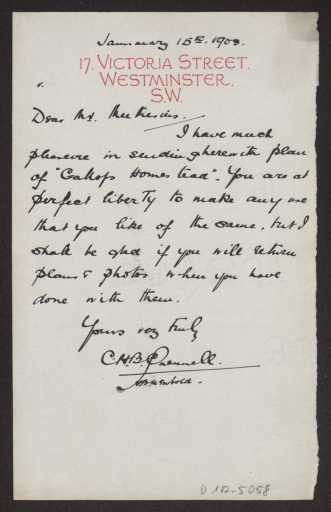 January 15th. 1903.
17. VICTORIA STREET.
WESTMINSTER.
S.W.
Dear Mr. Muthesius.
I have much
pleasure in sending herewith plan
of "Homestead". You are at
perfect liberty to make any use
that you like of the same, but I
shall be glad if you will return
plans & photos. when you have
done with them.
Yours very truly,
C.H.B. Quennell.
D 102-5058